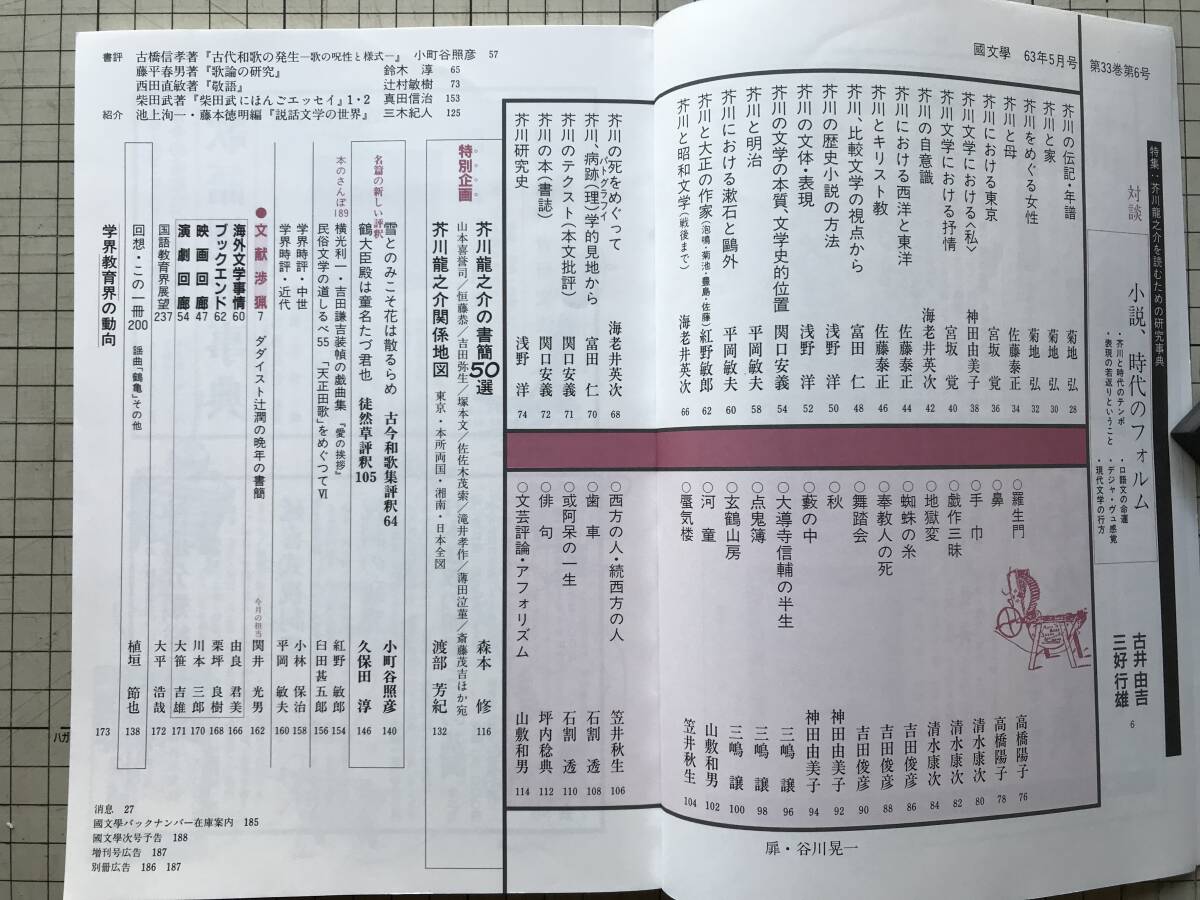 國文學 63年5月号 第33巻第6号
特集：芥川龍之介を読むための研究事典
対談 小説、時代のフォルム
・芥川と時代のテンポ
・表現の若返りということ
・口語文の命運
・デジャ・ヴュ感覚
・現代文学の行方
古井由吉
三好行雄
6
芥川の伝記・年譜 菊地 弘 28
芥川と家 菊地 弘 30
芥川をめぐる女性 菊地 弘 32
芥川と母 佐藤泰正 34
芥川における東京 宮坂 覺 36
芥川文学における〈私〉 神田由美子 38
芥川文学における抒情 宮坂 覺 40
芥川の自意識 海老井英次 42
芥川における西洋と東洋 佐藤泰正 44
芥川とキリスト教 佐藤泰正 46
芥川、比較文学の視点から 富田 仁 48
芥川の歴史小説の方法 浅野 洋 50
芥川の文体・表現 浅野 洋 52
芥川の文学の本質、文学史的位置 関口安義 54
芥川と明治 平岡敏夫 58
芥川における漱石と鷗外 平岡敏夫 60
芥川と大正の作家（泡鳴・菊池・豊島・佐藤） 紅野敏郎 62
芥川と昭和文学（戦後まで） 海老井英次 66
芥川の死をめぐって 海老井英次 68
芥川、病跡(理)学的見地から 富田 仁 70
パトグラフイ
芥川のテクスト（本文批評） 関口安義 71
芥川の本（書誌） 関口安義 72
芥川研究史 浅野 洋 74
○羅生門 高橋陽子 76
○鼻 高橋陽子 78
○手 巾 清水康次 80
○戯作三昧 清水康次 82
○地獄変 清水康次 84
○蜘蛛の糸 吉田俊彦 86
○奉教人の死 吉田俊彦 88
○舞踏会 吉田俊彦 90
○秋 神田由美子 92
○藪の中 神田由美子 94
○大導寺信輔の半生 三嶋 譲 96
○点鬼簿 三嶋 譲 98
○玄鶴山房 三嶋 譲 100
○河 童 山敷和男 102
○蜃気楼 笠井秋生 104
○西方の人・続西方の人 笠井秋生 106
○歯 車 石割 透 108
○或阿呆の一生 石割 透 110
○俳 句 坪内稔典 112
○文芸評論・アフォリズム 山敷和男 114
扉・谷川晃一
特別企画
芥川龍之介の書簡50選 森本 修 116
山本喜誉司／恒藤恭／吉田弥生／塚本文／佐佐木茂索／滝井孝作／薄田泣菫／斎藤茂吉ほか宛
芥川龍之介関係地図 東京・本所両国・湘南・日本全図 渡部芳紀 132
名篇の新しい評釈
雪とのみこそ花は散るらめ 古今和歌集評釈64 小町谷照彦 140
鶴大臣殿は童名たづ君也 徒然草評釈105 久保田 淳 146
本のさんぽ189
横光利一・吉田謙吉装幀の戯曲集『愛の挨拶』 紅野敏郎 154
民俗文学の道しるべ55 「天正田歌」をめぐつてⅥ 臼田甚五郎 156
学界時評・中世 小林保治 158
学界時評・近代 平岡敏夫 160
●文献渉猟7 ダダイスト辻潤の晩年の書簡 今月の担当 関井光男 162
海外文学事情60 由良君美 166
ブックエンド62 栗坪良樹 168
映画回廊47 川本三郎 170
演劇回廊54 大笹吉雄 171
国語教育界展望237 大平浩哉 172
回想・この一冊200 謡曲「鶴亀」その他 植垣節也 138
学界教育界の動向 173
書評 古橋信孝著『古代和歌の発生―歌の呪性と様式―』 小町谷照彦 57
藤平春男著『歌論の研究』 鈴木 淳 65
西田直敏著『敬語』 辻村敏樹 73
柴田武著『柴田武にほんごエッセイ』1・2 真田信治 153
紹介 池上洵一・藤本徳明編『説話文学の世界』 三木紀人 125
消息 27
國文學バックナンバー在庫案内 185
國文學次号予告 188
増刊号広告 187
別冊広告 186 187